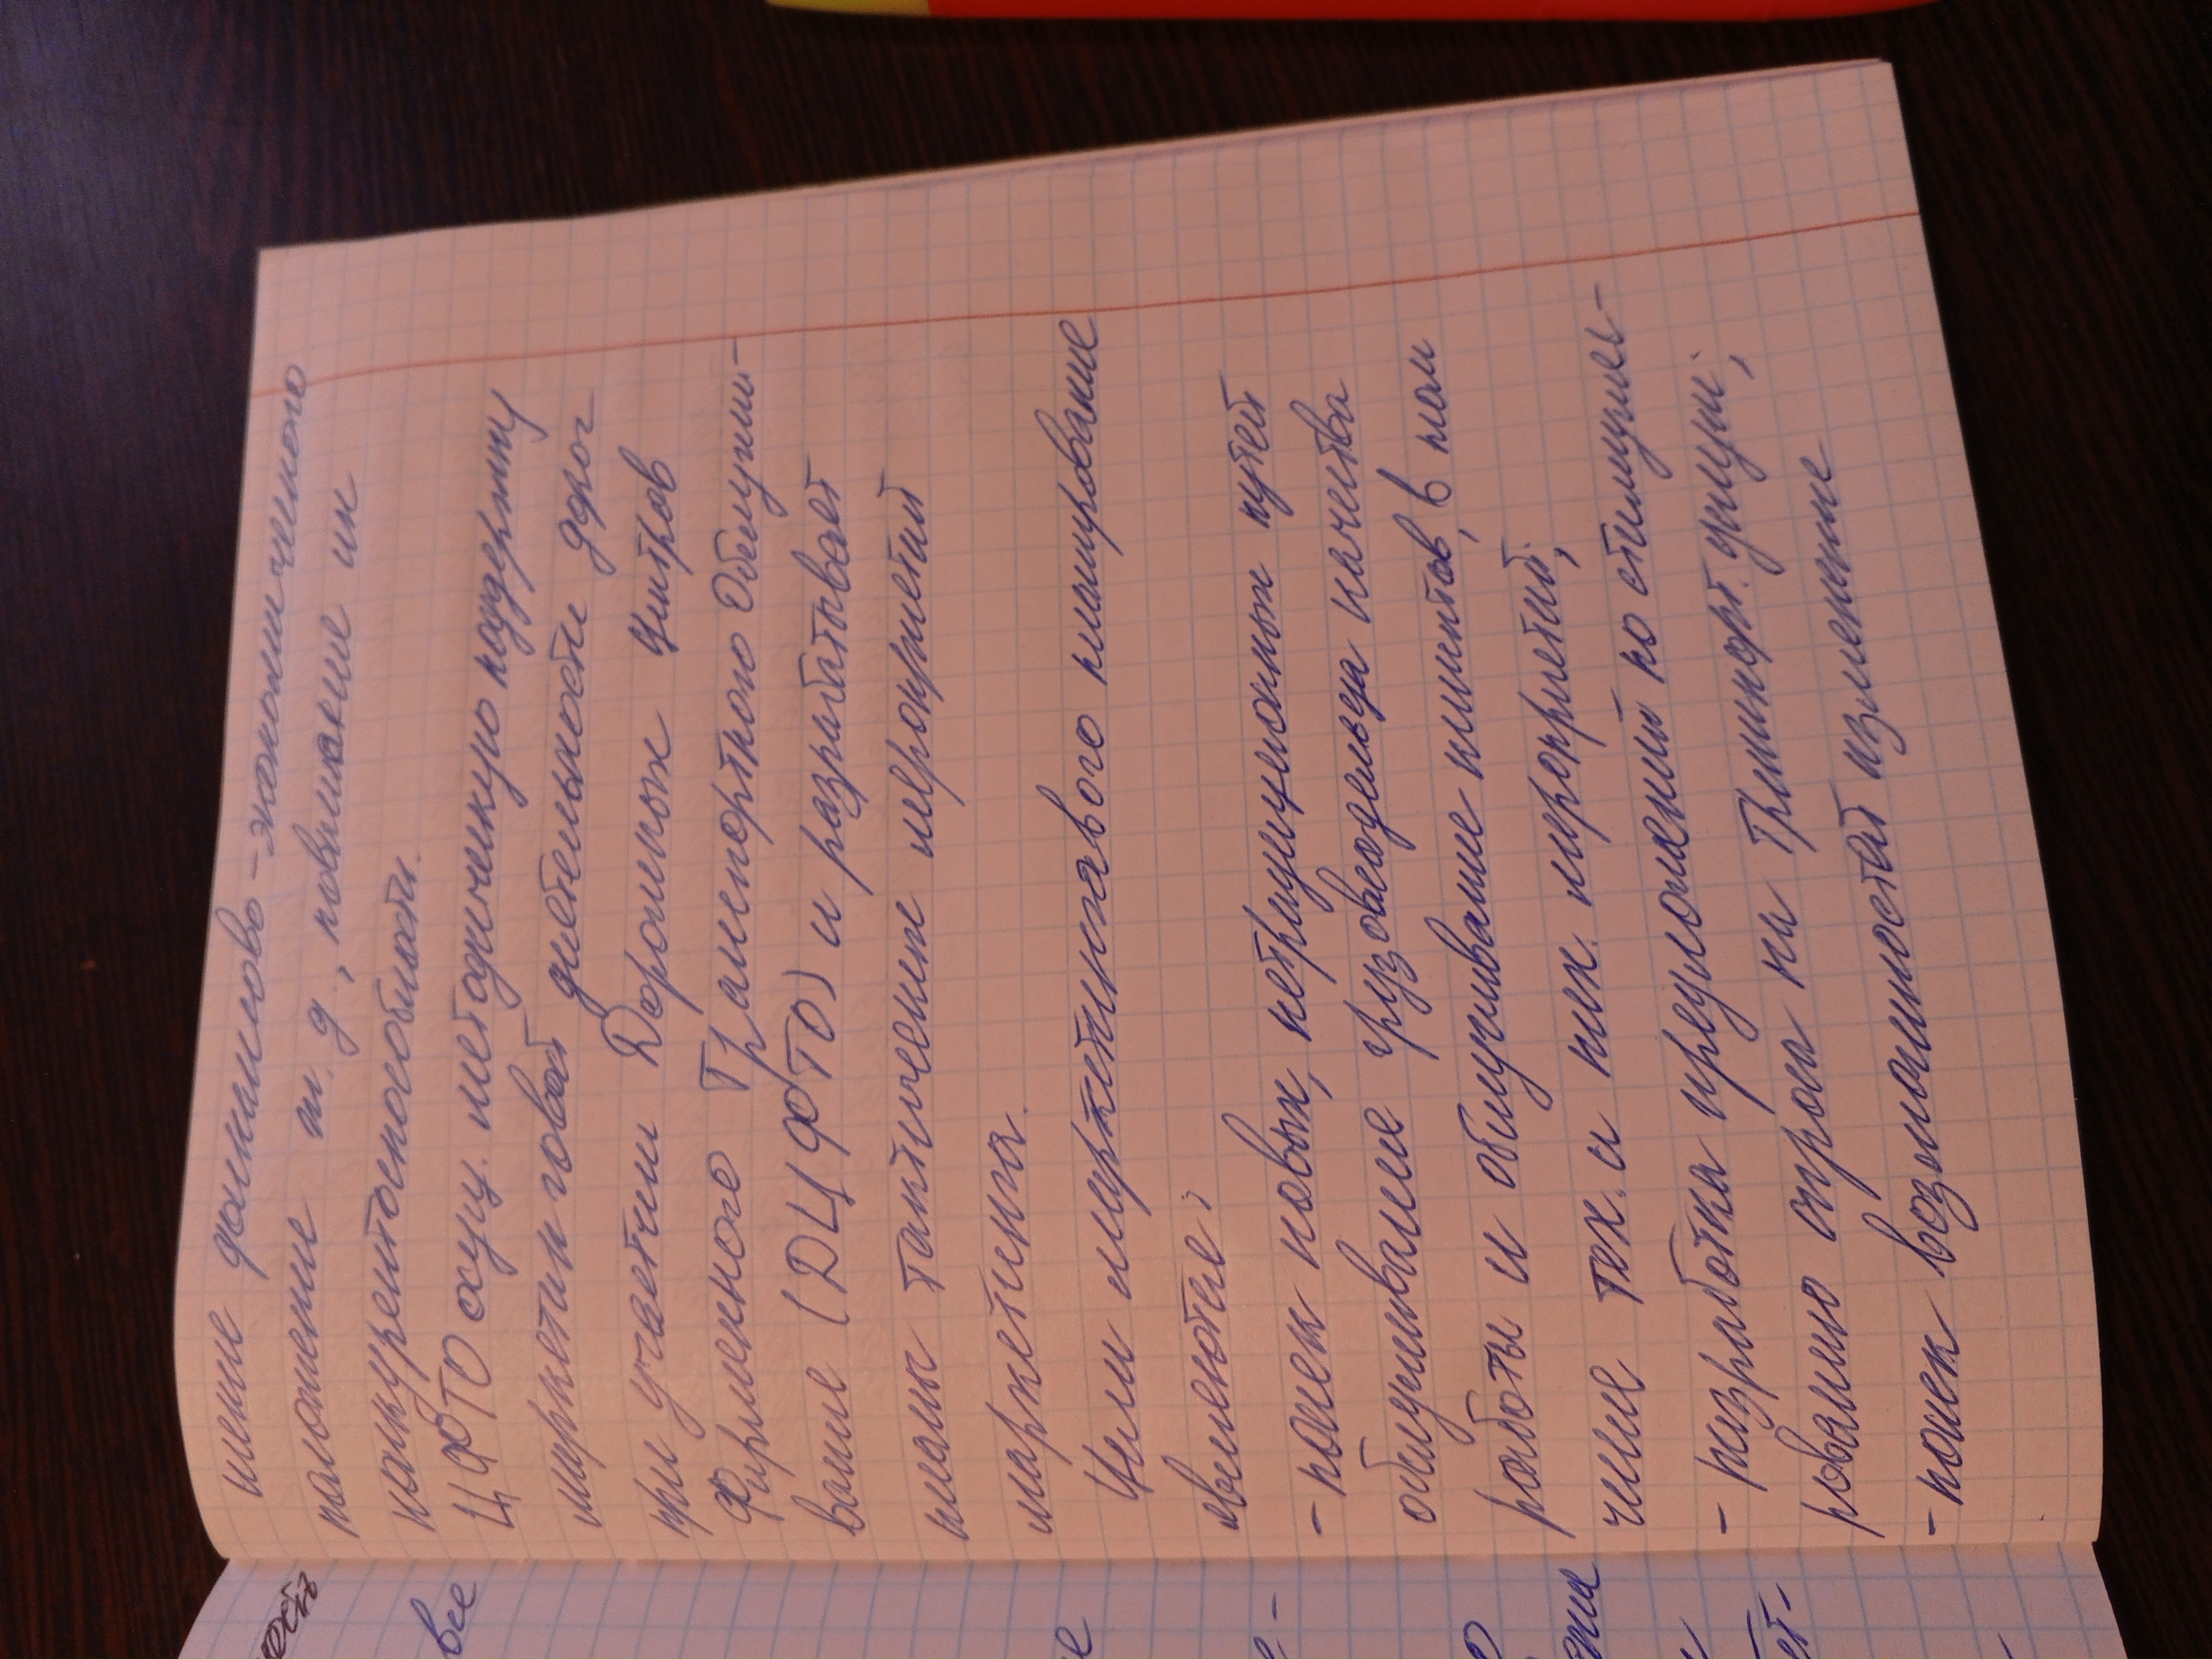 ность
все
шение финансово-экономического
положение ж.д., повышение их
конкурентоспособности.
ЦФТО осущ. методическую поддержку
маркетинговой деятельности дорог
при участии Дорожных центров
Фирменного Транспортного Обслужи-
вание (ДЦФТО) и разрабатывает
планы тактических мероприятий
маркетинга.
Цели маркетингового планирование
являются:
- поиск новых, нетрадиционных путей
обслуживание грузовладельца качества
работы и обслуживание клиентов, в том
числе тех. и ких. мероприятий;
- разработка предложений по стимулиро-
рованию спроса на транспорт. улуги;
- поиск возможностей изменение